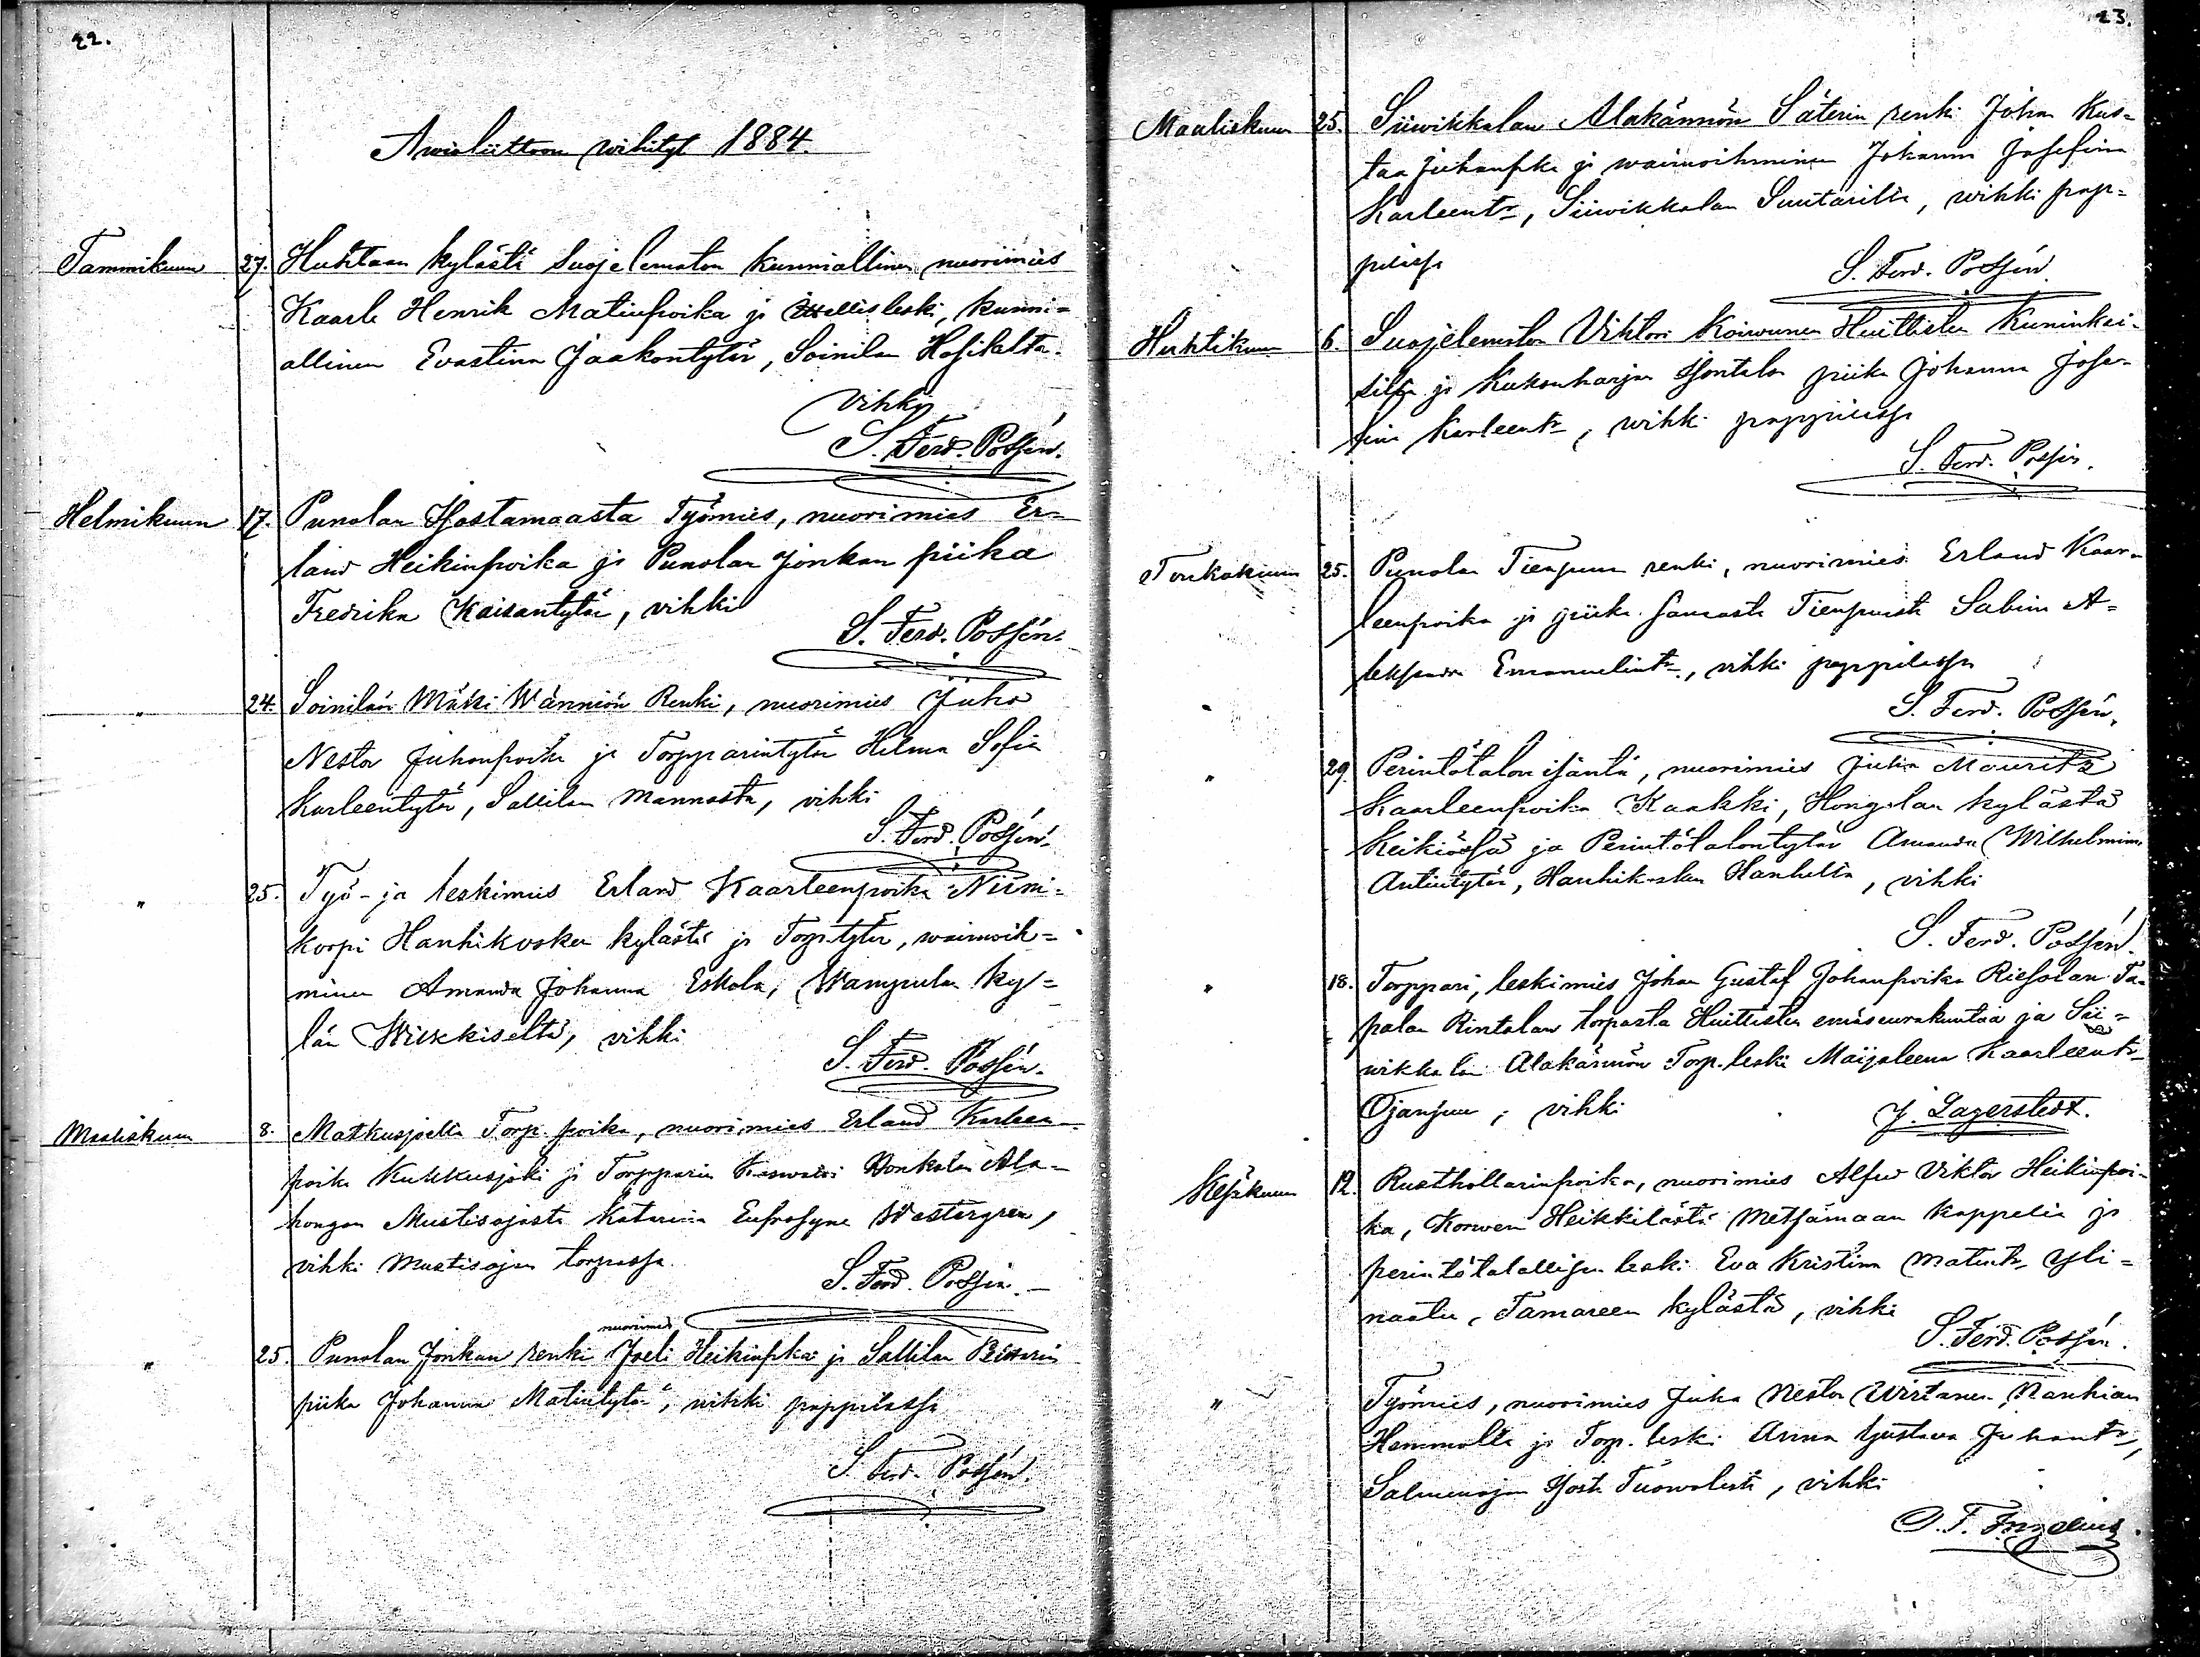 22.
Awioliittoon wihityt 1884.
Tammikuun 27. Huhtaan kylästä Suojelematon kunniallinen nuorimies
Kaarle Henrik Matinpoika ja leski, kunni=
allinen Evastina Jaakontytär, Soinilan
Vihki
S. Ferd. Possén.
Helmikuun 17. Punolan Työmies, nuorimies Er=
land Heikinpoika ja Punolan Jonkan piika
Fredrika Kaisantytär, vihki
S. Ferd. Possén.
" 24. Soinilan Mäkki Wännion Renki, nuorimies Juho
Nestor Juhonpoika ja Torpparintytär Helma Sofia
Karleentytär, Sallilan Mannasta, vihki
S. Ferd. Possén.
" 25. Työ- ja leskimies Erland Kaarleenpoika Niini=
korpi Hanhikosken kylästä ja Torp.tytär, waimoih=
minen Amanda Johanna Eskola, Wampulan ky=
län Wirkkiseltä, vihki
S. Ferd. Possén.
Maaliskuun 8. Matkusjoelta Torp. poika, nuorimies Erland Karleen
poika Kukkusjoki ja Torpparin Honkolan Ala=
hongan Mustisojasta Katarina Eufrosyne Westergren,
vihki Mustisojan torpassa.
S. Ferd. Possén.
nuorimies
" 25. Punolan Jonkan renki Joeli Heikinpka ja Sallilan
piika Johanna Matintytär, vihki pappilassa
S. Ferd. Possén.
23.
Maaliskuun 25. Siiwikkalan Alakännön Säterin renki Johan Kus=
taa Juhanpka ja waimoihminen Johanna Josefina
Karleentr, Siiwikkalan Suutarilta, wihki pap=
pilassa
S. Ferd. Possén
Huhtikuun 6. Suojelematon Viktori Koiwunen Huittisten Kuninkai=
silta ja Kukonharjan piika Johanna Jose=
fiina Karleentr, wihki pappilassa
S. Ferd. Possén.
Toukokuun 25. Punolan Tienpuun renki, nuorimies Erland Kaar=
leenpoika ja piika samasta Tienpuusta Sabina A=
leksandra Emanuelintr, vihki pappilassa
S. Ferd. Possén.
" 29 Perintötalon isäntä, nuorimies Juha Mauritz
Kaarleenpoika Kaakki, Hongolan kylästä
Keikiössä ja Perintötalontytär Amanda Wilhelmina
Antintytär, Hanhikosken Hanhelta, vihki
S. Ferd. Possén.
" 18. Torppari, leskimies Johan Gustaf Johanpoika Riesolan Ta=
palan Rintalan torpasta Huittisten emäseurakuntaa ja Sii=
wikkalan Alakännön Torp. leski Maijaleena Kaarleentr
Ojanpuu, vihki J. Lagerstedt.
Kesäkuun 12. Rusthollarinpoika, nuorimies Alfred Viktor Heikinpoi=
ka, Korwen Heikkilästä Metsämaan kappelia ja
perintötalollisen leski Eva Kristina Matintr Yli=
naatu, Tamareen kylästä, vihki
S. Ferd. Possén.
" Työmies, nuorimies Juha Nestor Wirtanen,
ja Torp. leski Anna Gustava Juhantr,
Salmenojan vihki